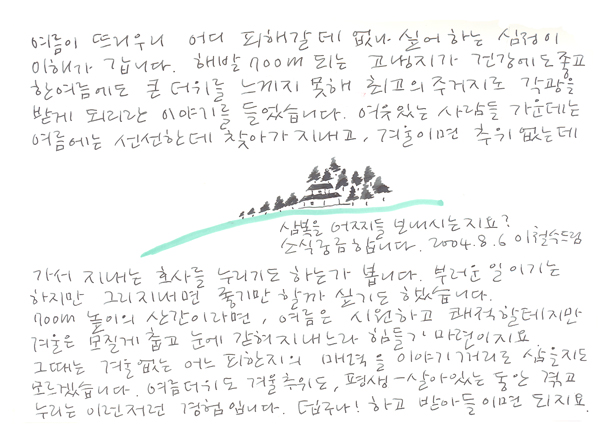 여름이 뜨거우니 어디 피해갈 데 없나 싶어 하는 심정이
이해가 갑니다. 해발 700m 되는 고냉지가 건강에도 좋고
한여름에도 큰 더위를 느끼지 못해 최고의 주거지로 각광을
받게 되리란 이야기를 들었습니다. 여유있는 사람들 가운데는
여름에는 선선한데 찾아가 지내고, 겨울이면 추위 없는데
삼복을 어찌들 보내시는지요?
소식 궁금합니다. 2004.8.6 이철수드림
가서 지내는 호사를 누리기도 하는가 봅니다. 부러운 일이기는
하지만 그리 지내면 좋기만 할까 싶기도 했습니다.
700m 높이의 산간이라면, 여름은 시원하고 쾌적할테지만
겨울은 모질게 춥고 눈에 갇혀 지내느라 힘들기 마련이지요.
그때는 겨울 없는 어느 피한지의 매력을 이야기거리로 삼을지도
모르겠습니다. 여름더위도 겨울추위도, 평생-살아있는 동안 겪고
누리는 이런저런 경험입니다. 덥구나! 하고 받아들이면 되지요.